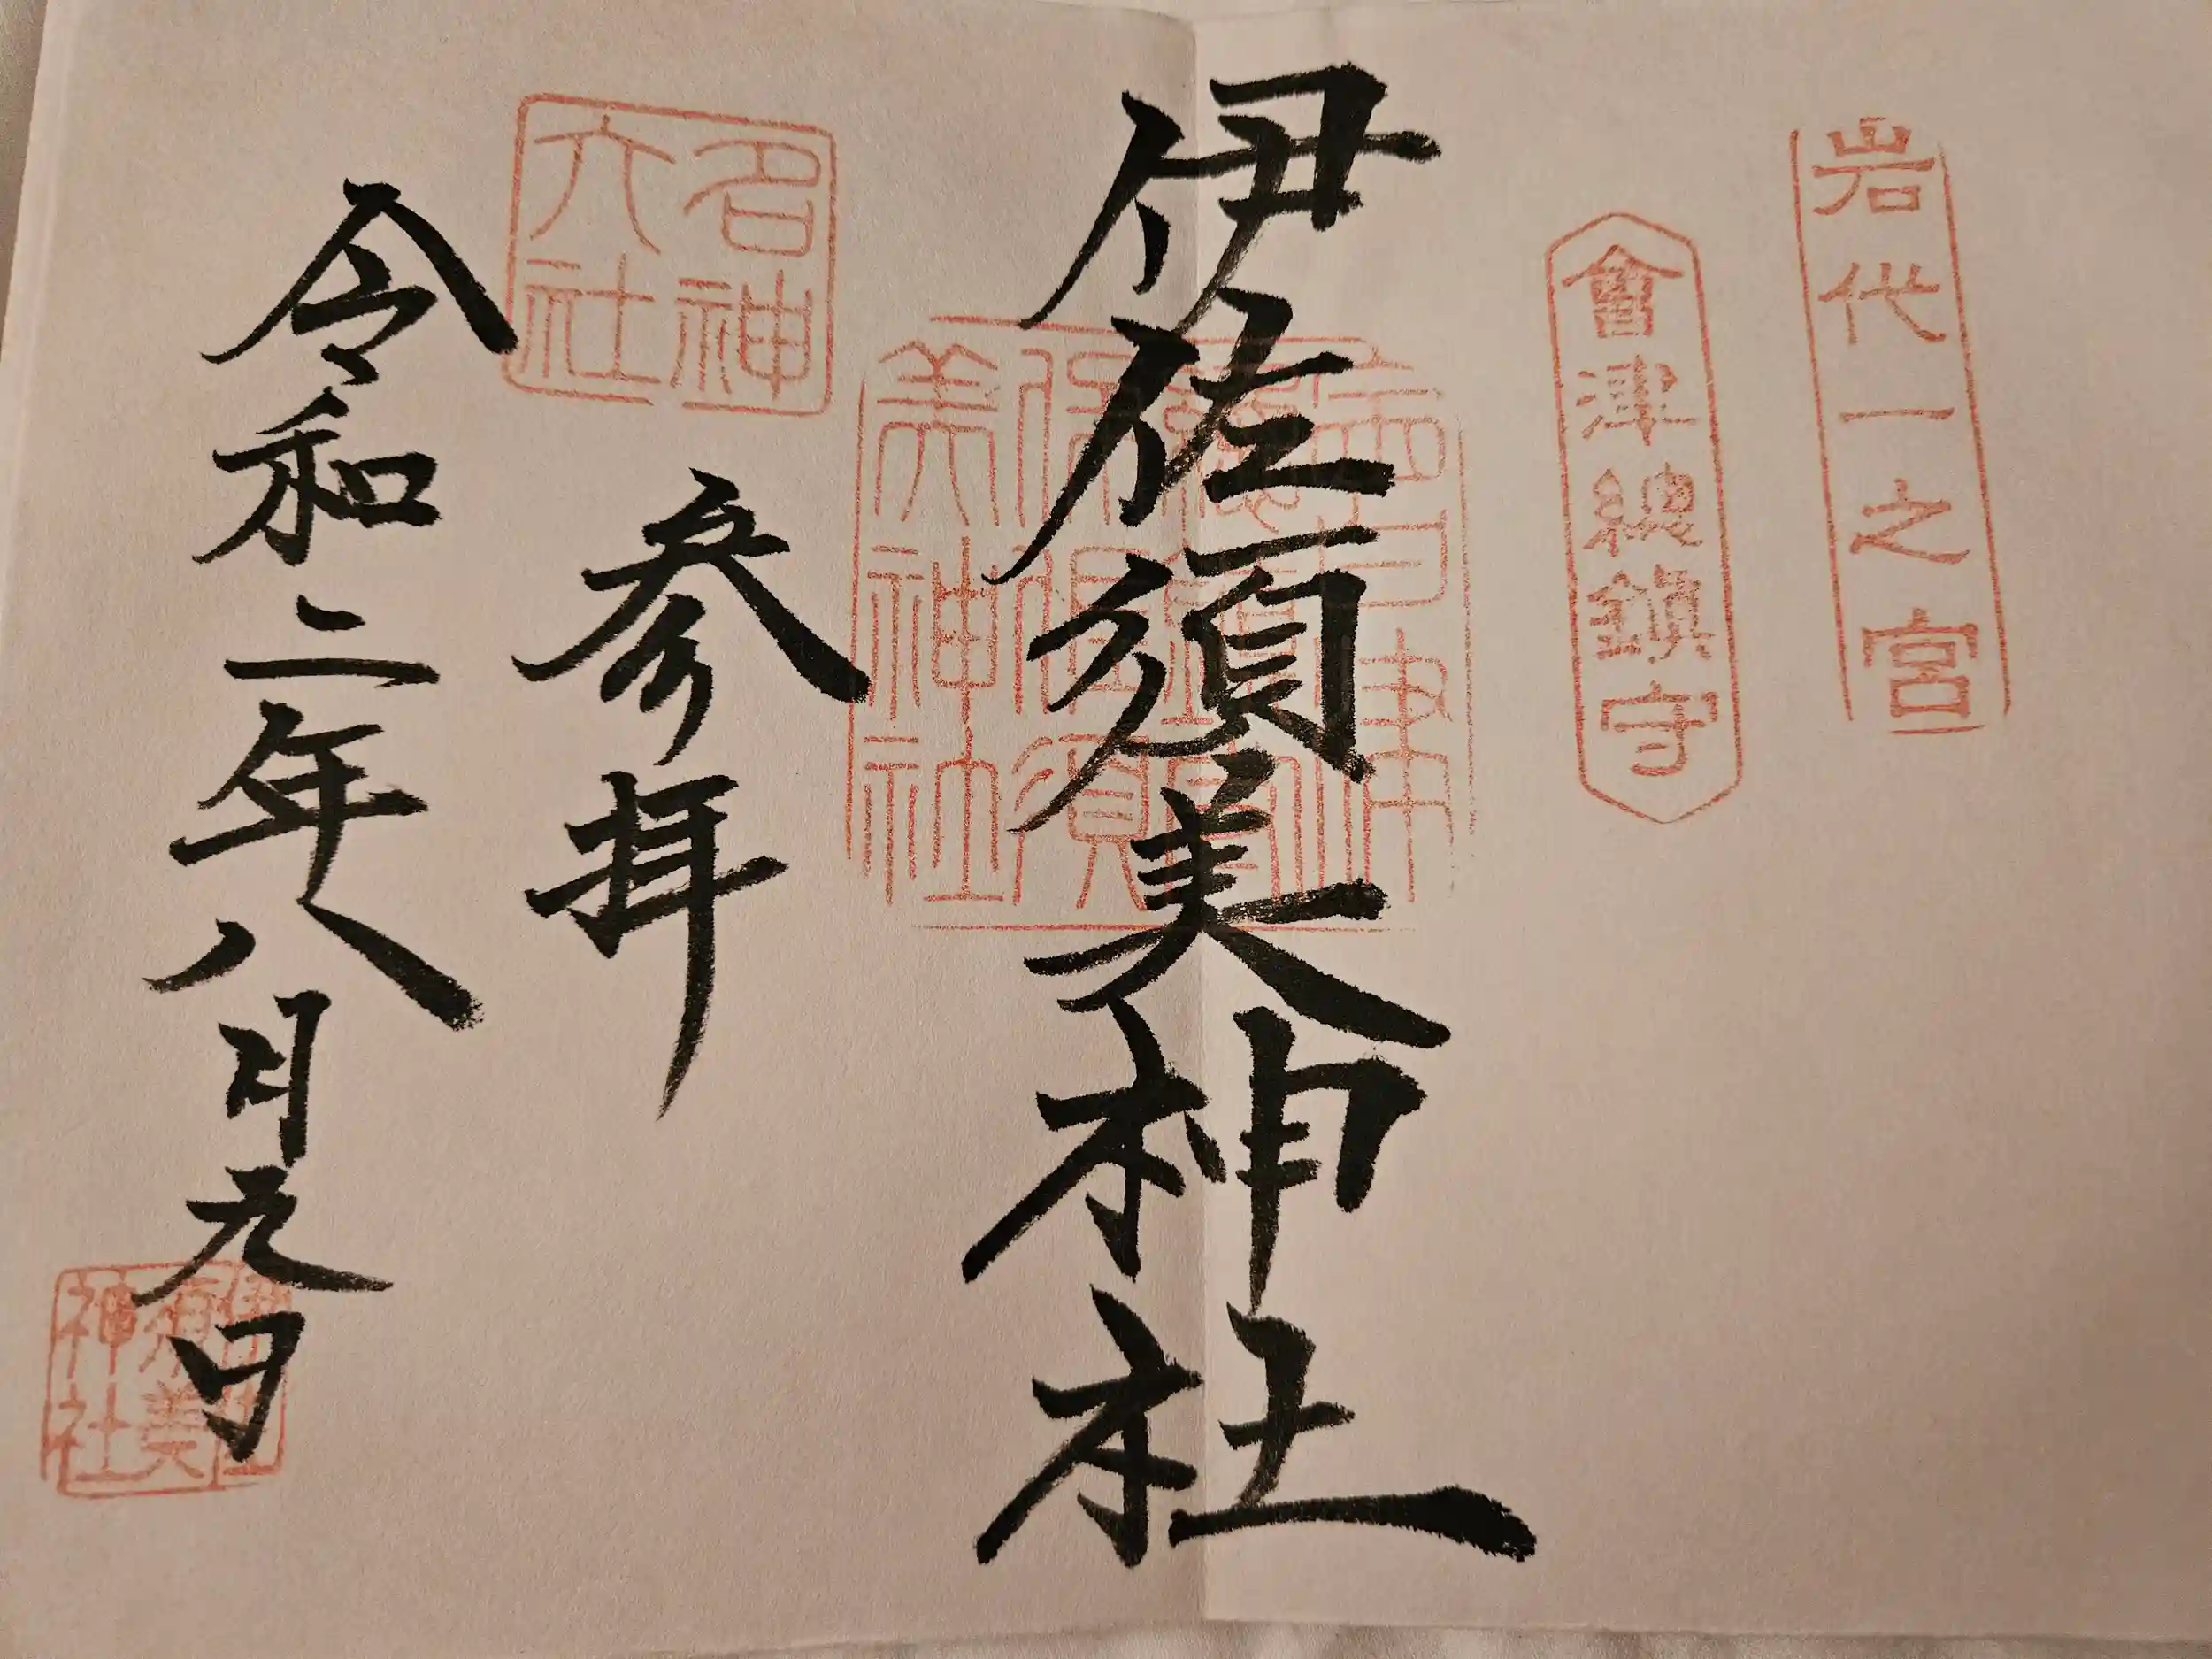 岩代一之宮
會津總鎮守
伊佐須美神社
名神
大社
参拝
令和二年八月九日
伊佐
須美
神社